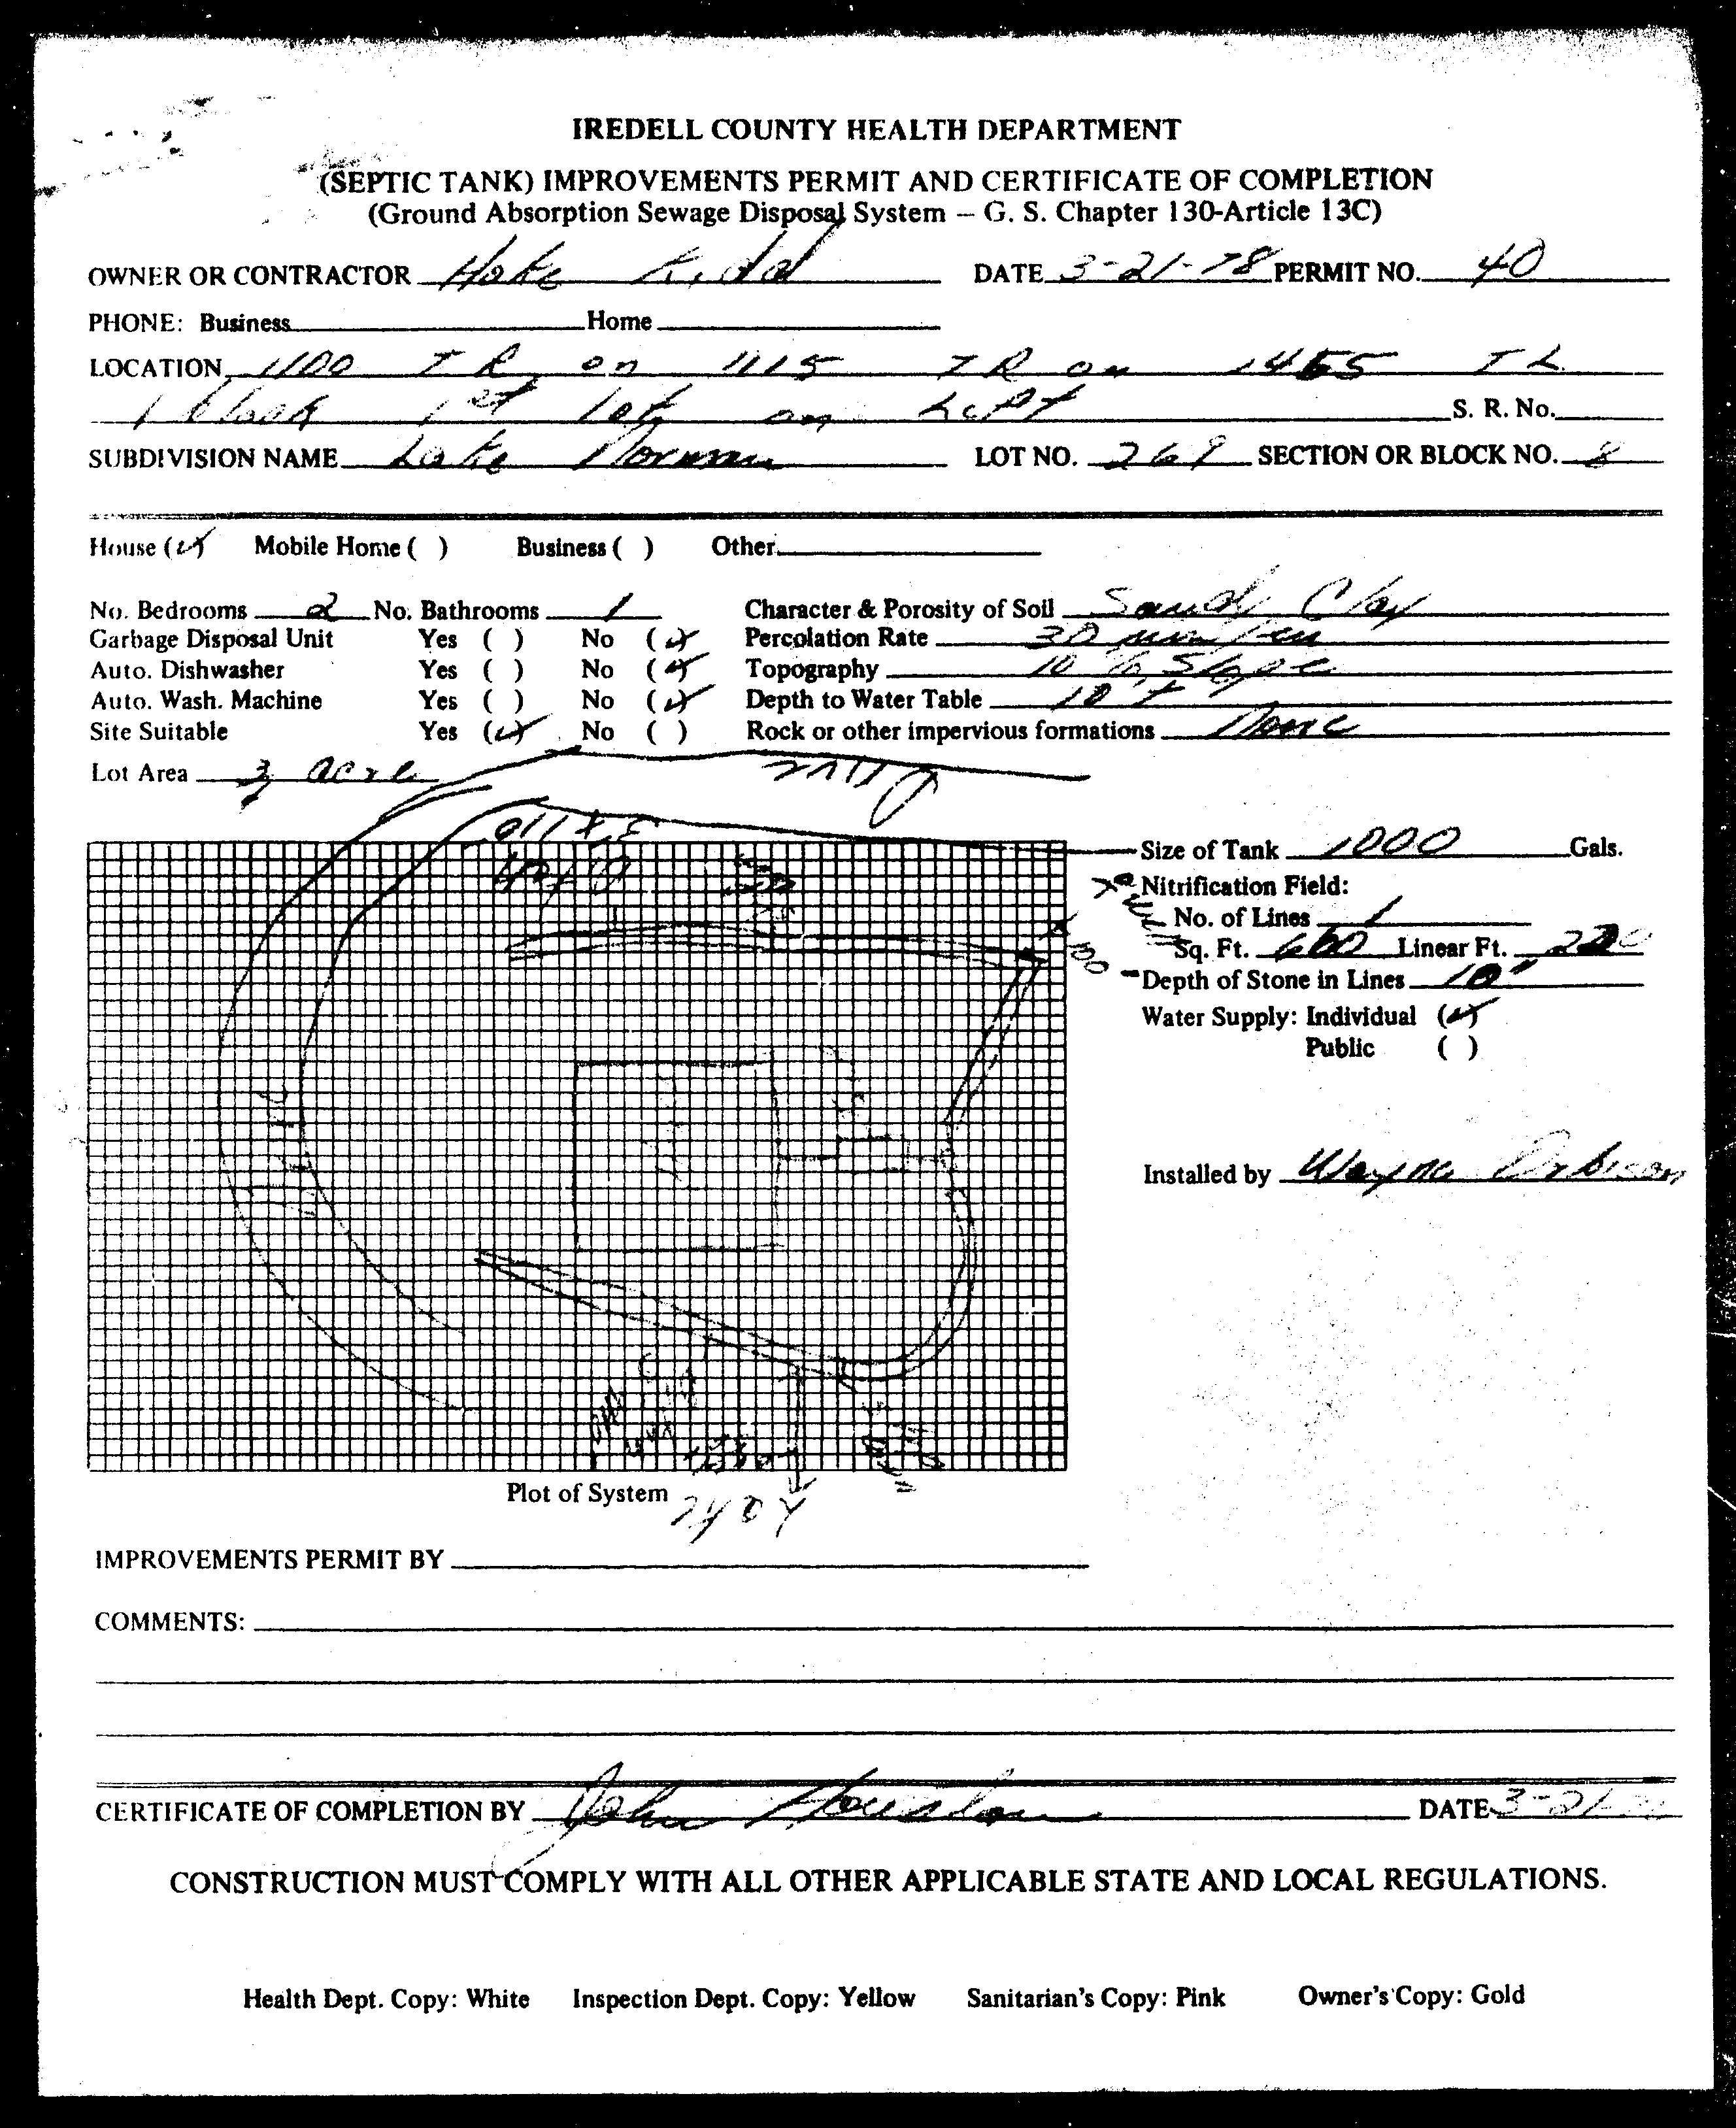 IREDELL COUNTY HEALTH DEPARTMENT
(SEPTIC TANK) IMPROVEMENTS PERMIT AND CERTIFICATE OF COMPLETION
(Ground Absorption Sewage Disposal System – G. S. Chapter 130-Article 13C)
OWNER OR CONTRACTOR Hoke Kidd DATE 3-21-78 PERMIT NO. 40
PHONE: Business Home
LOCATION 1100 TR on 1115 TR on 1455 TL
1 block 1st lot on Left S. R. No.
SUBDIVISION NAME Lake Norman LOT NO. 269 SECTION OR BLOCK NO. 8
House (✓) Mobile Home ( ) Business ( ) Other
No. Bedrooms 2 No. Bathrooms 1 Character & Porosity of Soil Sandy Clay
Garbage Disposal Unit Yes ( ) No (✓) Percolation Rate 30 min/
Auto. Dishwasher Yes ( ) No (✓) Topography 10 % Slope
Auto. Wash. Machine Yes ( ) No (✓) Depth to Water Table 10 +
Site Suitable Yes (✓) No ( ) Rock or other impervious formations None
Lot Area acre
Size of Tank 1000 Gals.
Nitrification Field:
No. of Lines 1
Sq. Ft. 660 Linear Ft. 220
Depth of Stone in Lines 10"
Water Supply: Individual (✓)
Public ( )
Installed by Wayne Orbison
Plot of System
IMPROVEMENTS PERMIT BY
COMMENTS:
CERTIFICATE OF COMPLETION BY John Houston DATE 3-21-
CONSTRUCTION MUST COMPLY WITH ALL OTHER APPLICABLE STATE AND LOCAL REGULATIONS.
Health Dept. Copy: White Inspection Dept. Copy: Yellow Sanitarian's Copy: Pink Owner's Copy: Gold